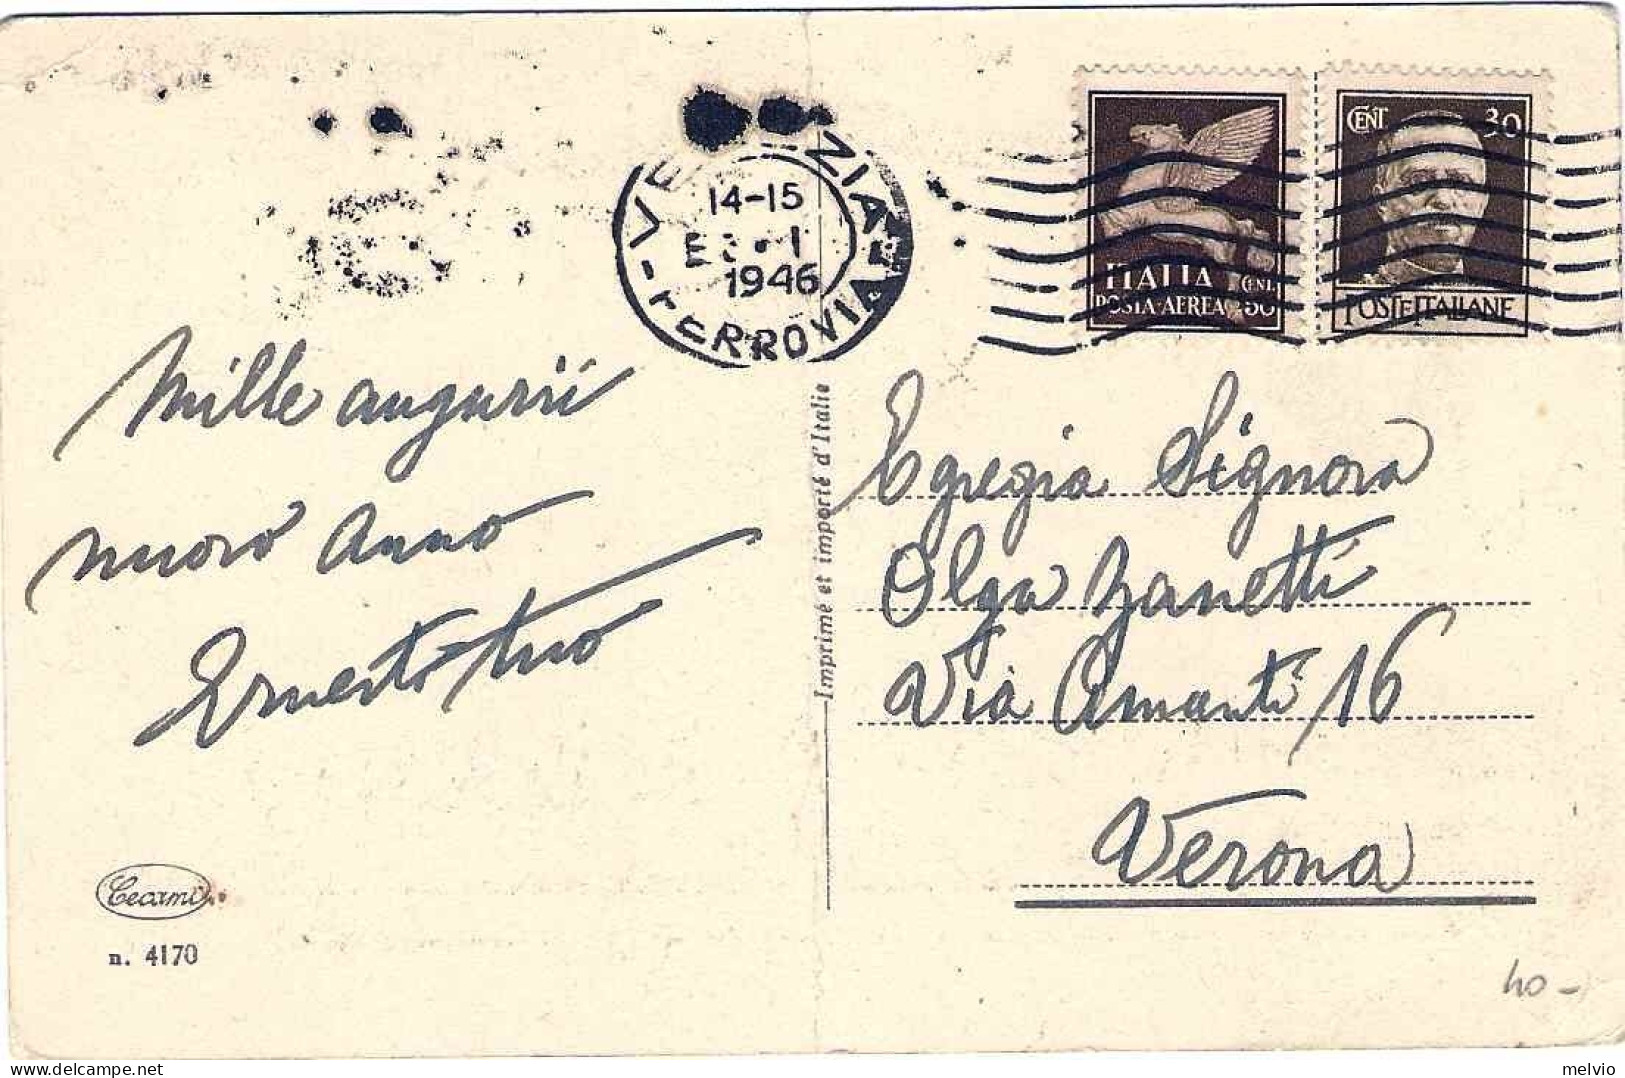 VENEZIA
14-15
1
1946
-FERROVIA-
ITALIA
POSTA·AEREA CENT. 50
CENT 30
POSTE ITALIANE
Mille augurii
nuovo anno
Ernesto tuo
Imprimé et importé d'Italie
Egregia Signora
Olga Zanetti
Via Amanti 16
Verona
Cecami
n. 4170
40-
melvio